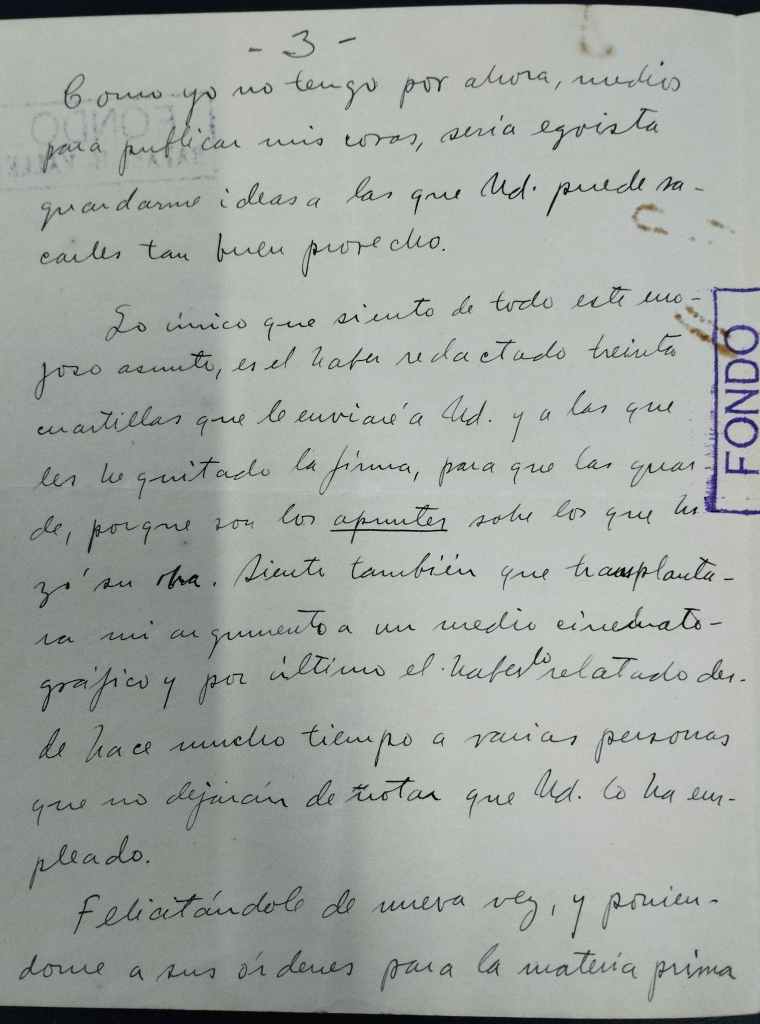 - 3 -
Como yo no tengo por ahora, medios
para publicar mis cosas, sería egoista
guardarme ideas a las que Ud. puede sa-
carles tan buen provecho.
Lo único que siento de todo este eno-
joso asunto, es el haber redactado treinta
cuartillas que le enviaré a Ud. y a las que
les he quitado la firma, para que las guar
de, porque son los apuntes sobre los que hi
zó su obra. Siento también que transplanta-
ra mi argumento a un medio cinemato-
gráfico y por último el haberlo relatado des-
de hace mucho tiempo a varias personas
que no dejarán de notar que Ud. lo ha em-
pleado.
Felicitándole de nueva vez, y ponien-
dome a sus órdenes para la materia prima
FONDO
FONDO